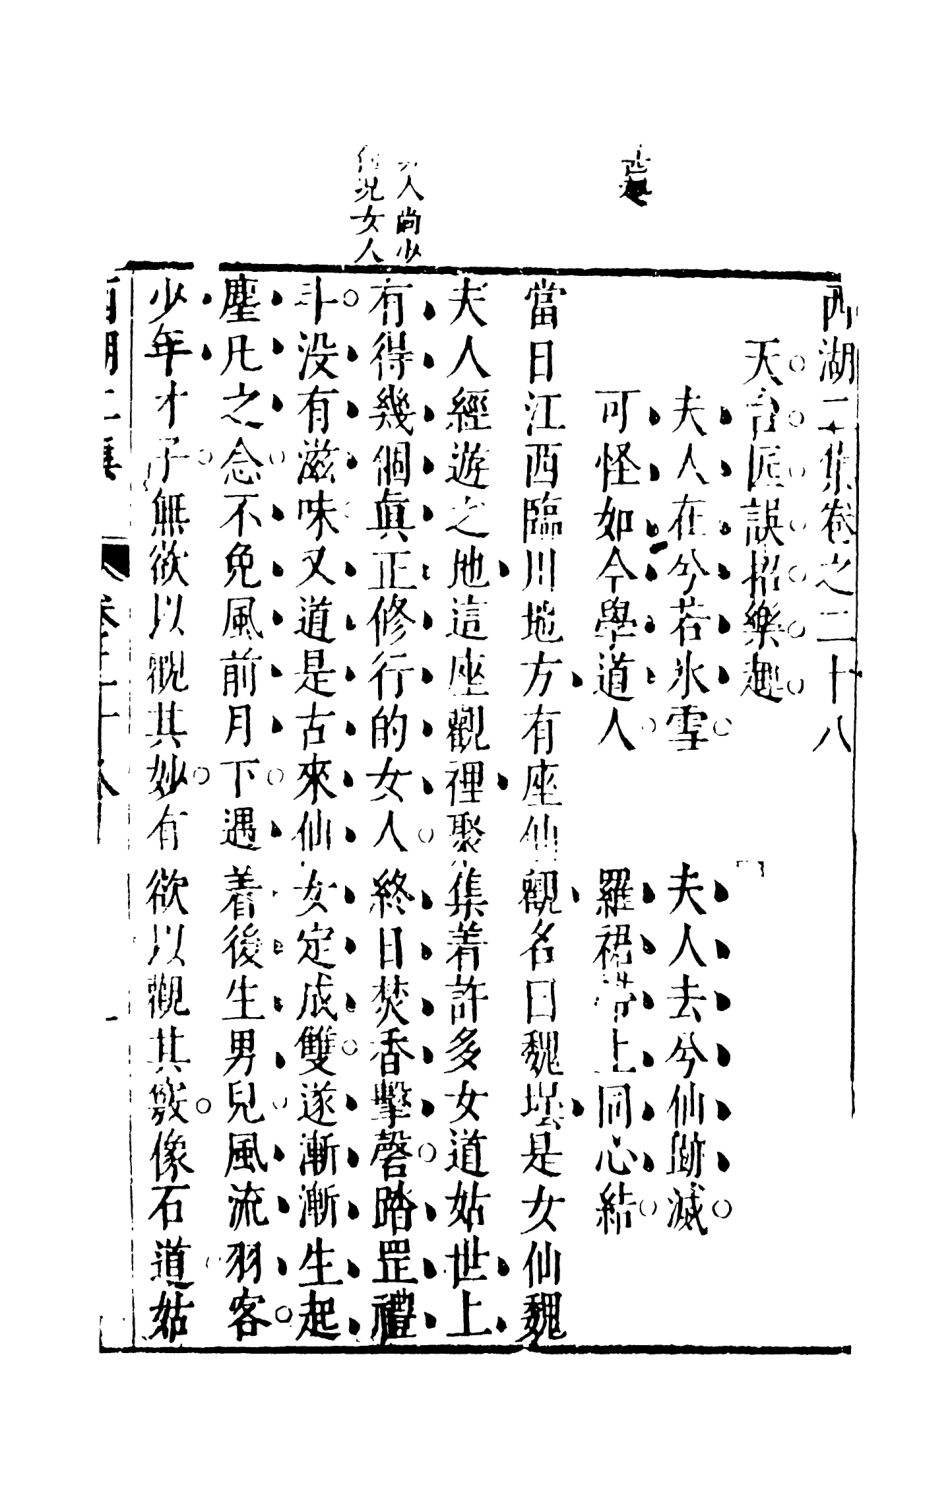 西湖二集卷之二十八
天台匠誤招樂趣
夫人在兮若氷雪　夫人去兮仙跡滅
可怪如今學道人　羅裙帶上同心結
當日江西臨川地方有座仙觀名曰魏壇是女仙魏
夫人經遊之地這座觀裡聚集着許多女道姑世上
有得幾個眞正修行的女人終日焚香擊磬踏罡禮
斗没有滋味又道是古來仙女定成雙遂漸漸生起
塵凡之念不免風前月下遇着後生男兒風流羽客
少年才子無欲以觀其妙有欲以觀其竅像石道姑
西湖二集　卷二十八　一
人尚少
況女人